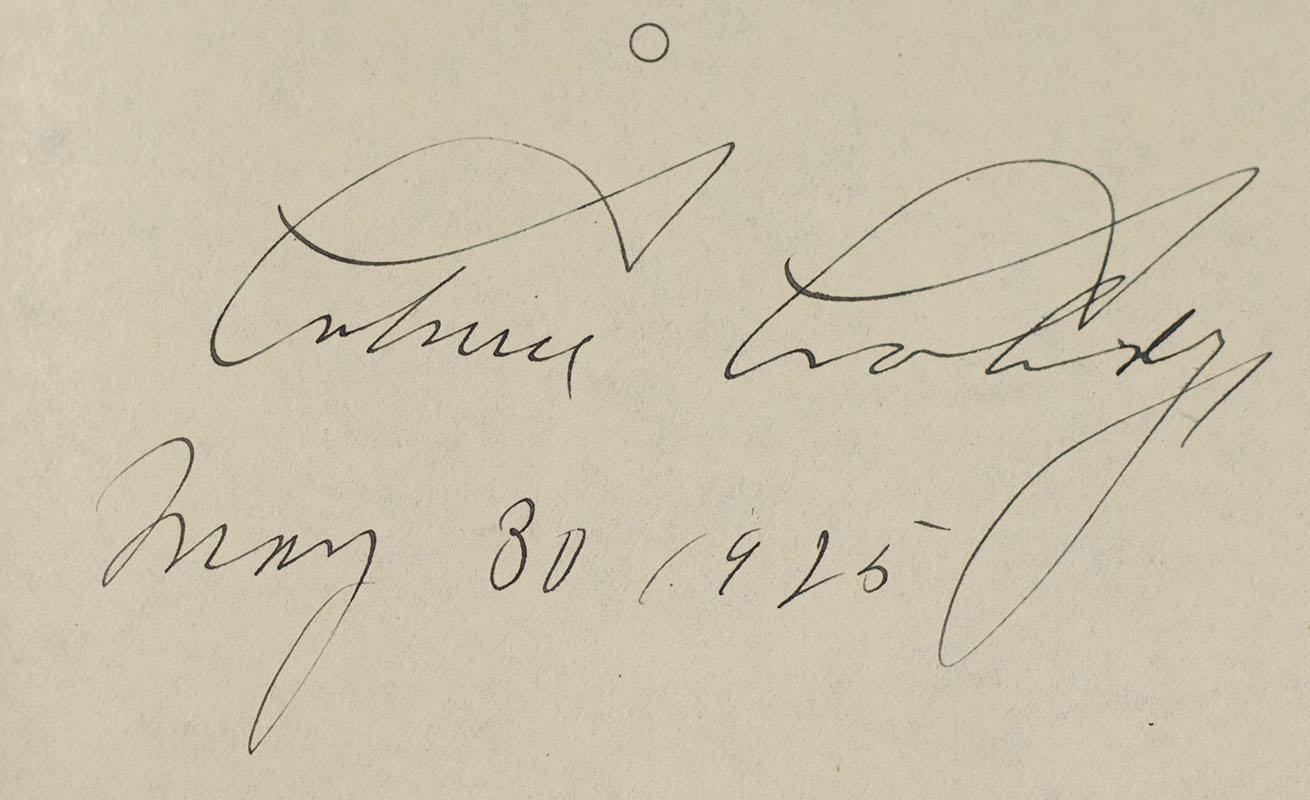 Calvin Coolidge
May 30 1925